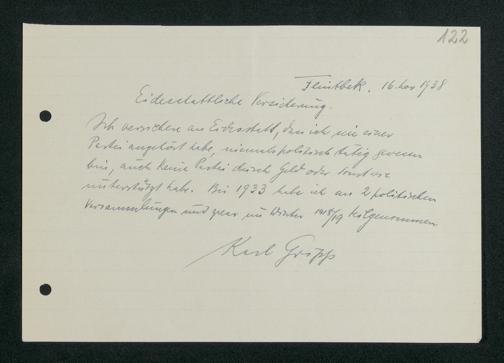 122
Flintbek, 16. Nov 1938
Eidesstattliche Versicherung.
Ich versichere an Eidesstatt, dass ich nie einer
Partei angehört habe, niemals politisch tätig gewesen
bin, auch keine Partei durch Geld oder sonst wie
unterstützt habe. Bis 1933 habe ich an 2 politischen
Versammlungen und zwar im Winter 1918/19 teilgenommen
Karl Gripp